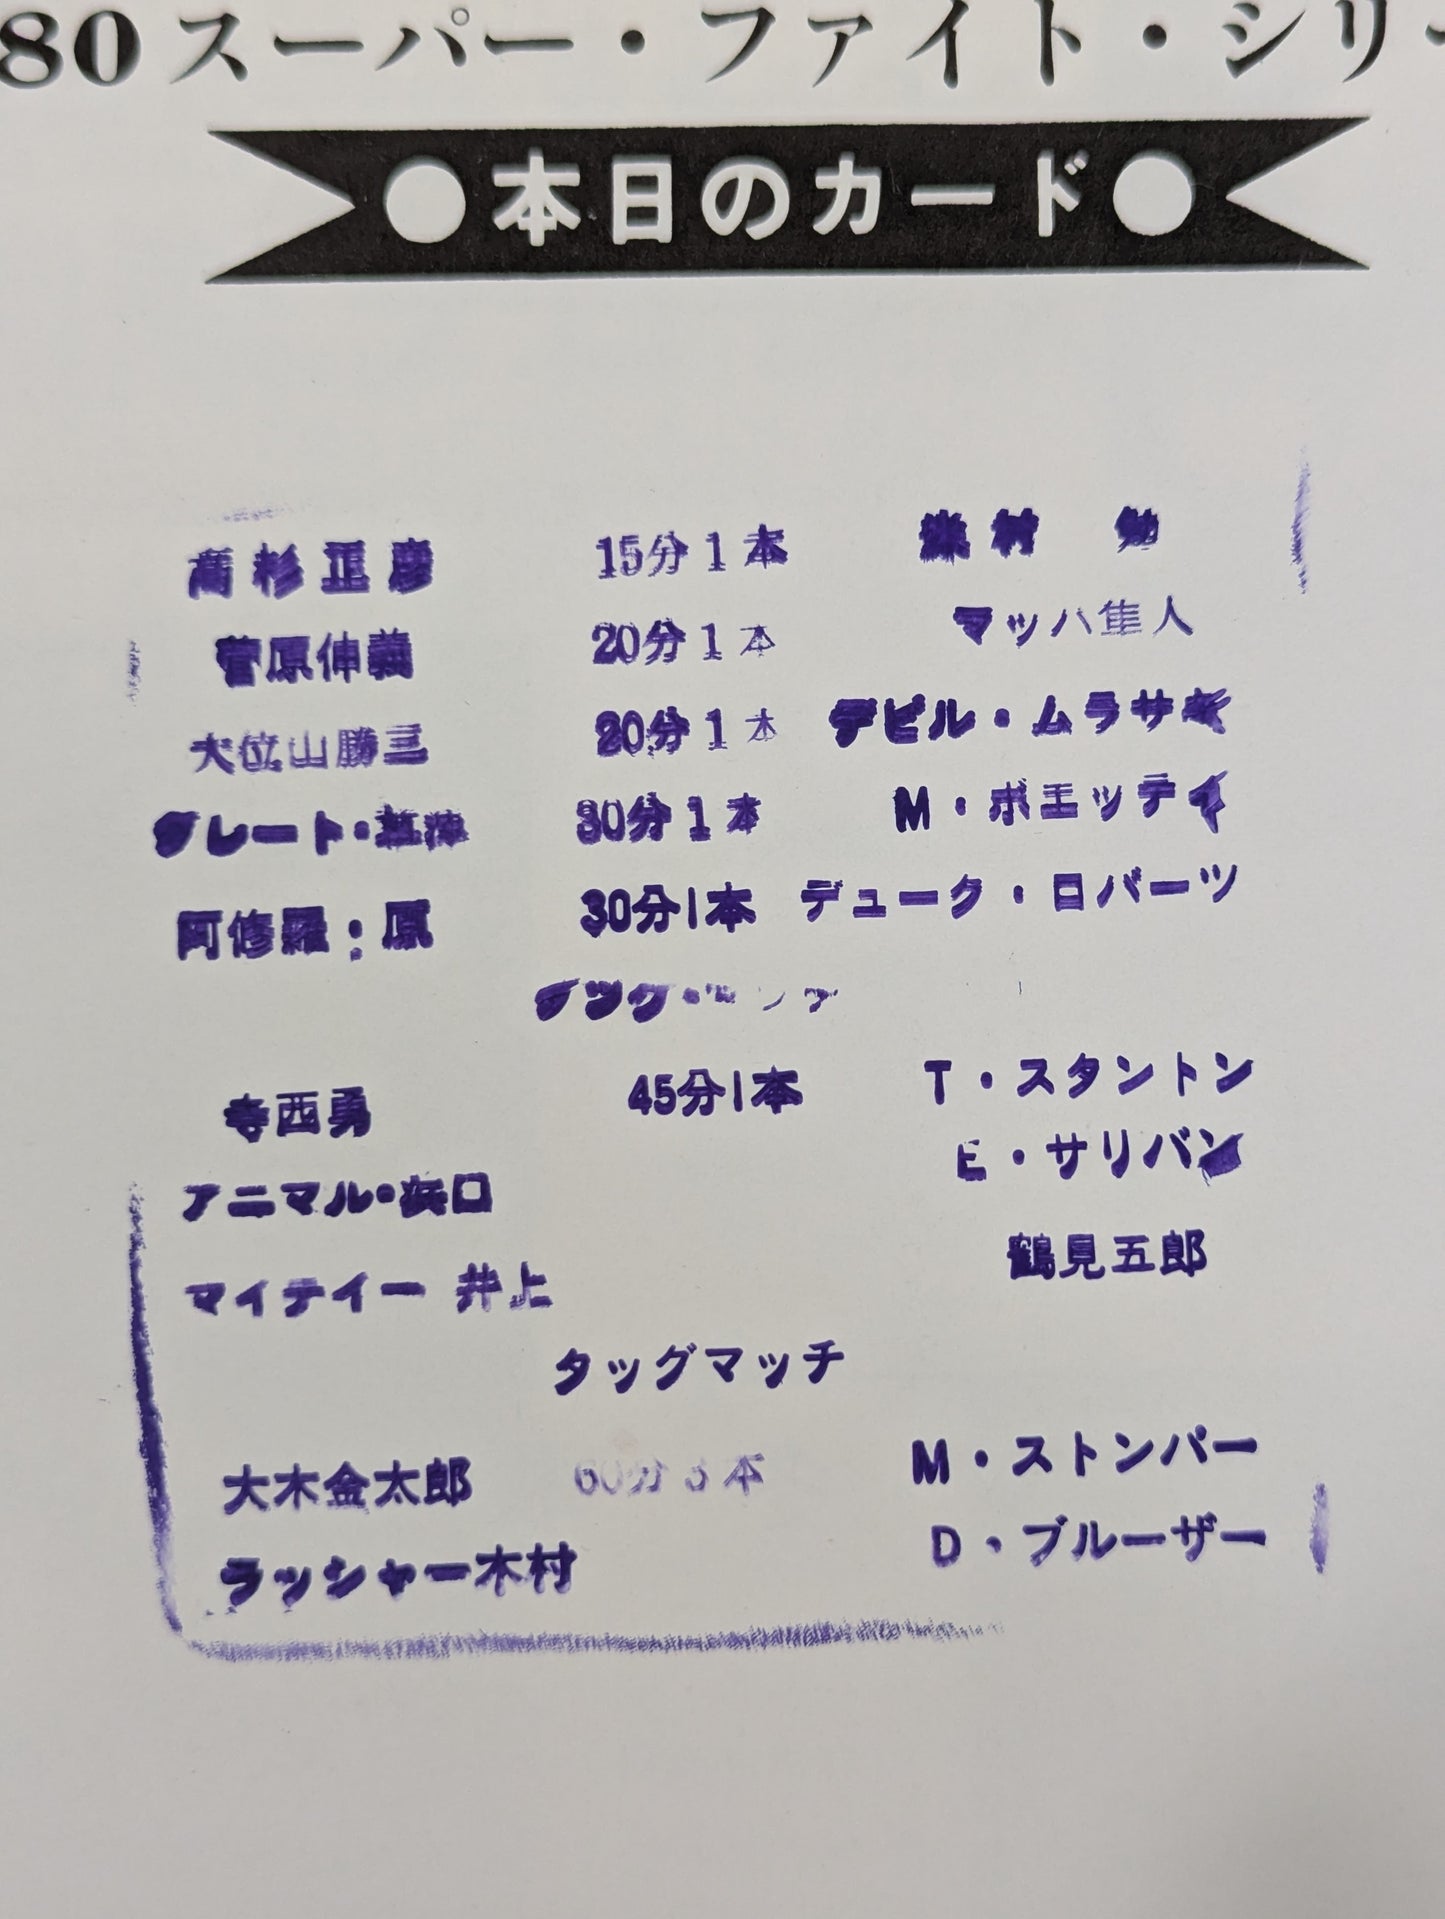 80スーパー・ファイト・シリー
●本日のカード●
高杉正彦 15分1本 米村 勉
菅原伸義 20分1本 マッハ隼人
大位山勝三 20分1本 デビル・ムラサキ
グレート・草津 30分1本 M・ボエッティ
阿修羅・原 30分1本 デューク・ロバーツ
寺西勇 45分1本 T・スタントン
アニマル・浜口 E・サリバン
マイティー井上 鶴見五郎
タッグマッチ
大木金太郎 60分3本 M・ストンパー
ラッシャー木村 D・ブルーザー